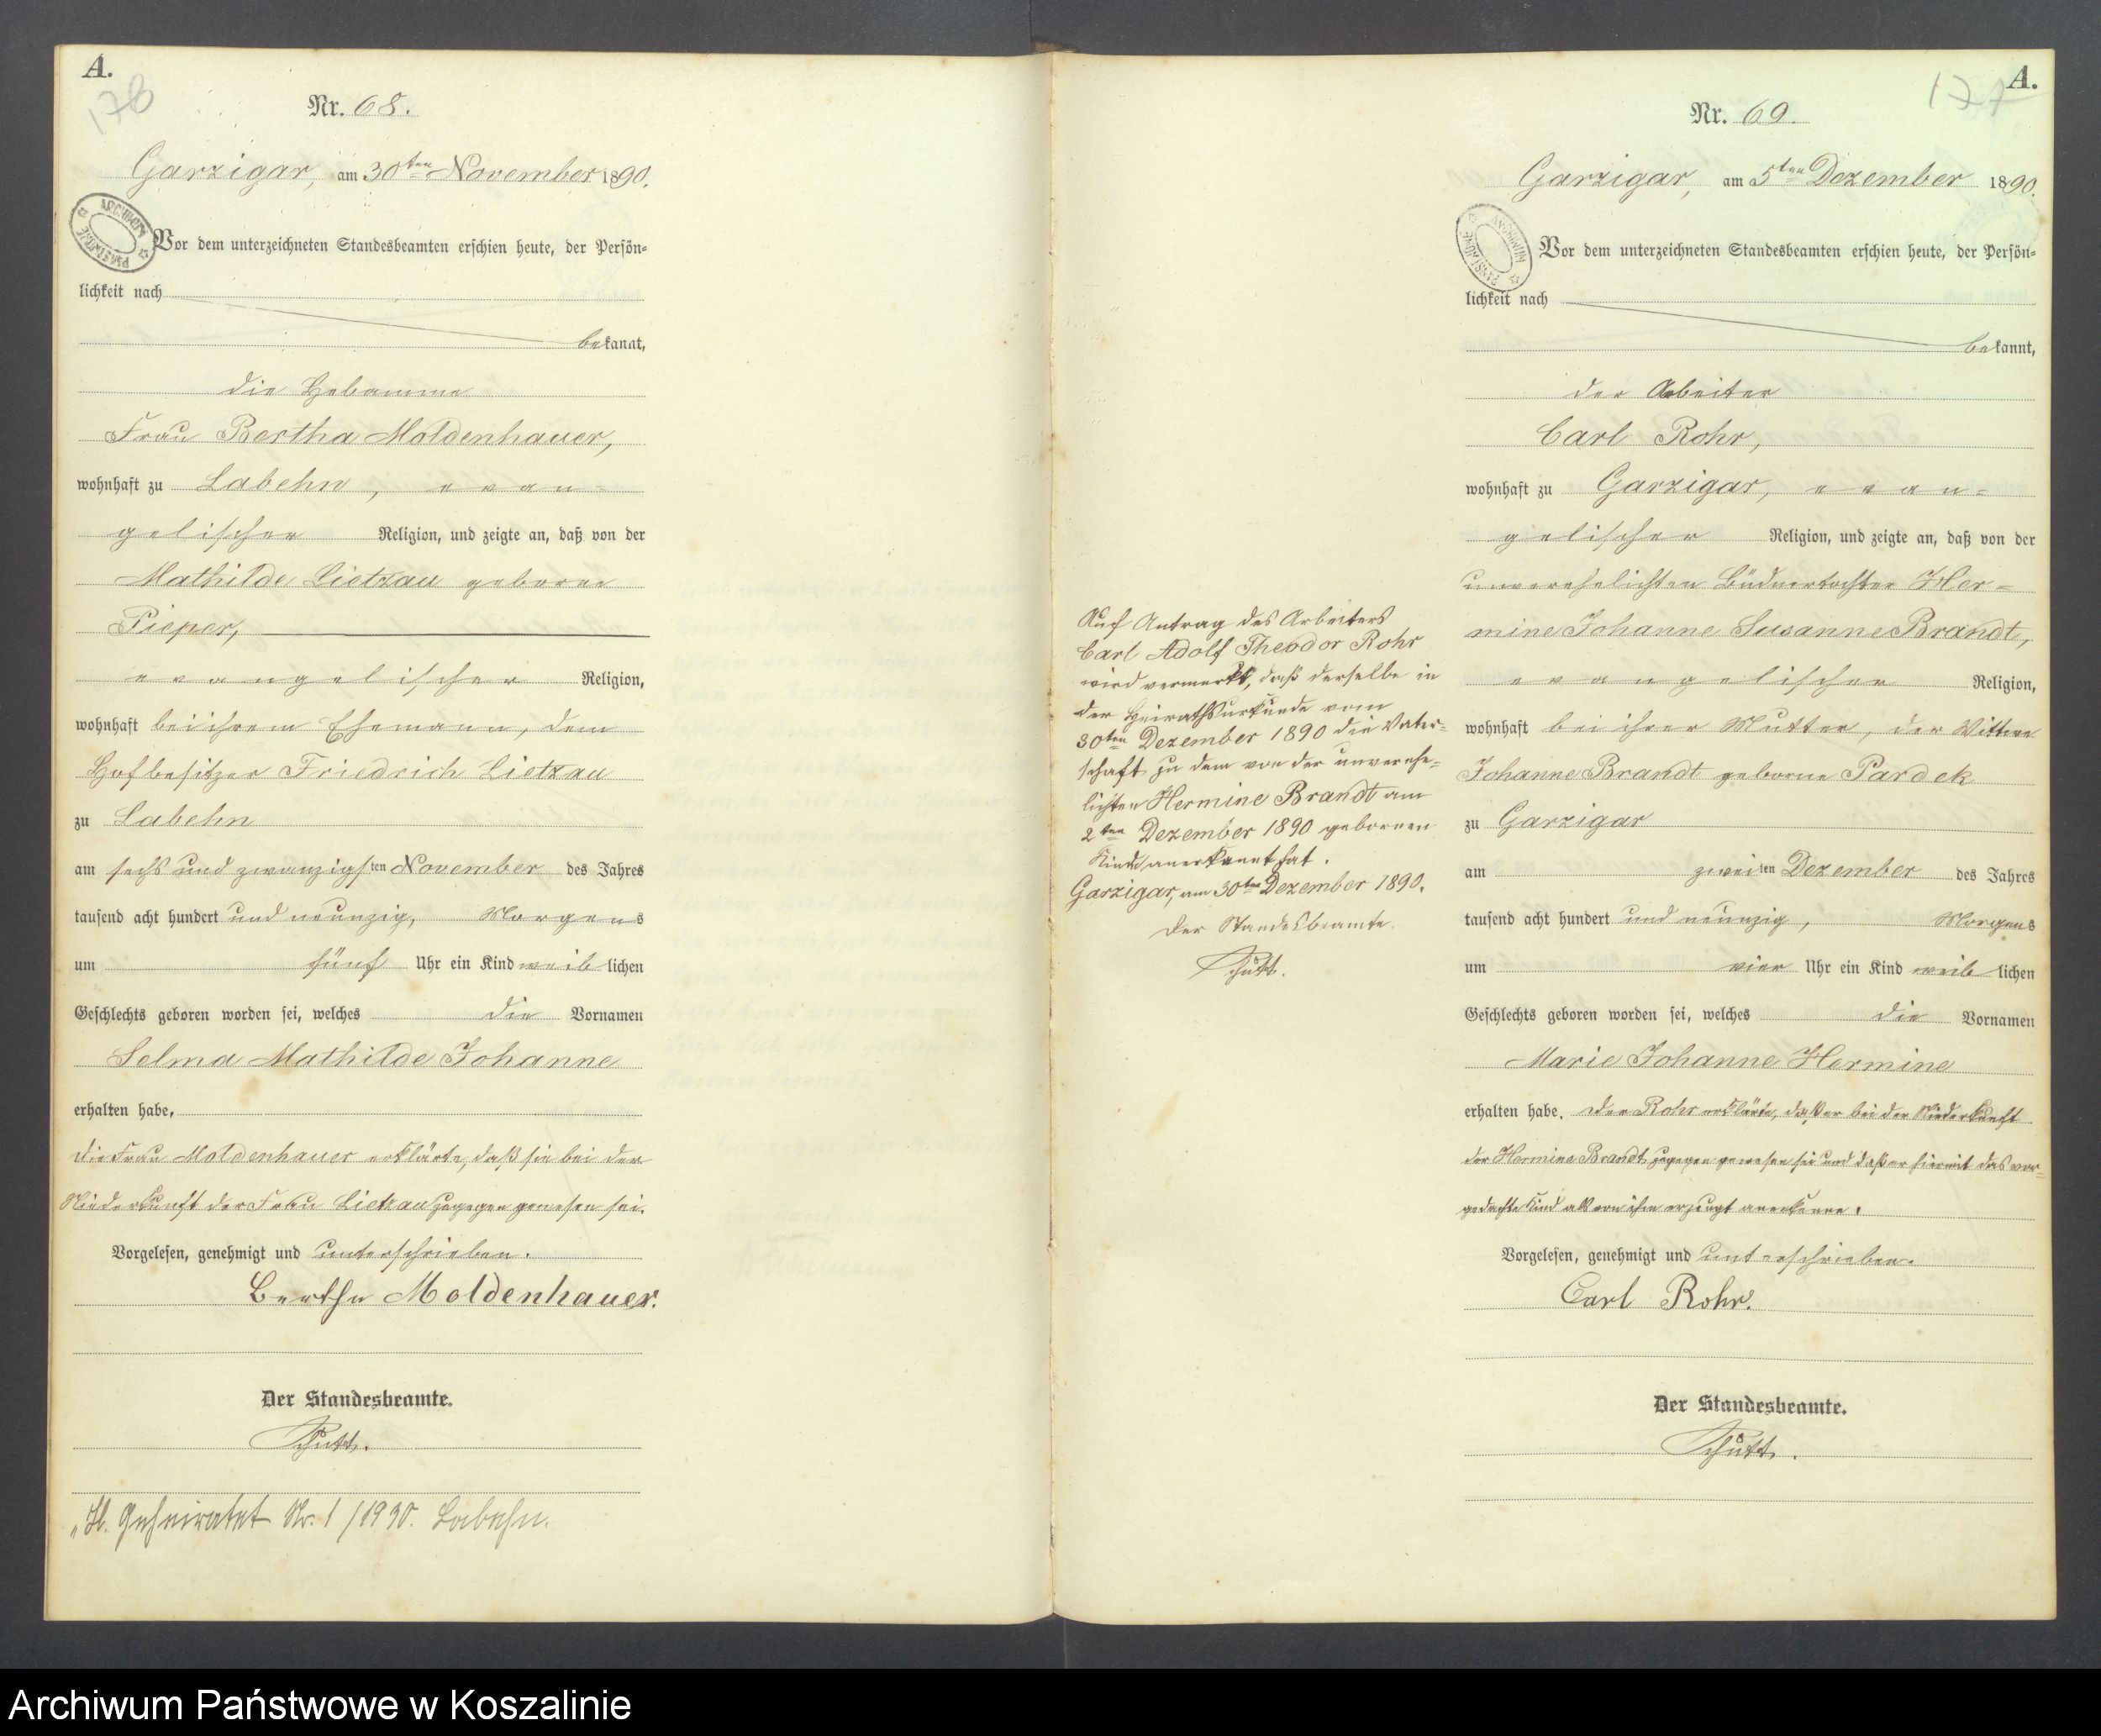 A.
178
Nr. 68.
Garzigar, am 30ten November 1890.
Vor dem unterzeichneten Standesbeamten erschien heute, der Persön-
lichkeit nach
bekannt,
die Hebamme
Frau Bertha Moldenhauer,
wohnhaft zu Labehn, evan-
gelischer Religion, und zeigte an, daß von der
Mathilde Lietzau geborne
Pieper,
evangelischer Religion,
wohnhaft bei ihrem Ehemann, dem
Hofbesitzer Friedrich Lietzau
zu Labehn
am sechs und zwanzigsten November des Jahres
tausend acht hundert und neunzig, Morgens
um fünf Uhr ein Kind weiblichen
Geschlechts geboren worden sei, welches die Vornamen
Selma Mathilde Johanne
erhalten habe.
Die Frau Moldenhauer erklärte, daß sie bei der
Niederkunft der Frau Lietzau zugegen gewesen sei.
Vorgelesen, genehmigt und unterschrieben.
Bertha Moldenhauer.
Der Standesbeamte.
Schütt.
Geheiratet Nr. 1/1930. Labehn.
Auf Antrag des Arbeiters
Carl Adolf Theodor Rohr
wird vermerkt, daß derselbe in
der Heirathsurkunde vom
30ten Dezember 1890 die Vater-
schaft zu dem von der unverehe-
lichten Hermine Brandt am
2ten Dezember 1890 geborenen
Kinde anerkannt hat.
Garzigar, am 30ten Dezember 1890.
Der Standesbeamte.
Schütt.
A.
177
Nr. 69.
Garzigar, am 5ten Dezember 1890.
Vor dem unterzeichneten Standesbeamten erschien heute, der Persön-
lichkeit nach
bekannt,
der Arbeiter
Carl Rohr,
wohnhaft zu Garzigar, evan-
gelischer Religion, und zeigte an, daß von der
unverehelichten Büdnertochter Her-
mine Johanne Susanne Brandt,
evangelischer Religion,
wohnhaft bei ihrer Mutter, der Wittwe
Johanne Brandt geborne Pardek
zu Garzigar
am zweiten Dezember des Jahres
tausend acht hundert und neunzig, Morgens
um vier Uhr ein Kind weiblichen
Geschlechts geboren worden sei, welches die Vornamen
Marie Johanne Hermine
erhalten habe. Der Rohr erklärte, daß er bei der Niederkunft
der Hermine Brandt zugegen gewesen sei und daß er hiermit das vor-
gedachte Kind als von ihm erzeugt anerkenne.
Vorgelesen, genehmigt und unterschrieben.
Carl Rohr.
Der Standesbeamte.
Schütt.
Archiwum Państwowe w Koszalinie